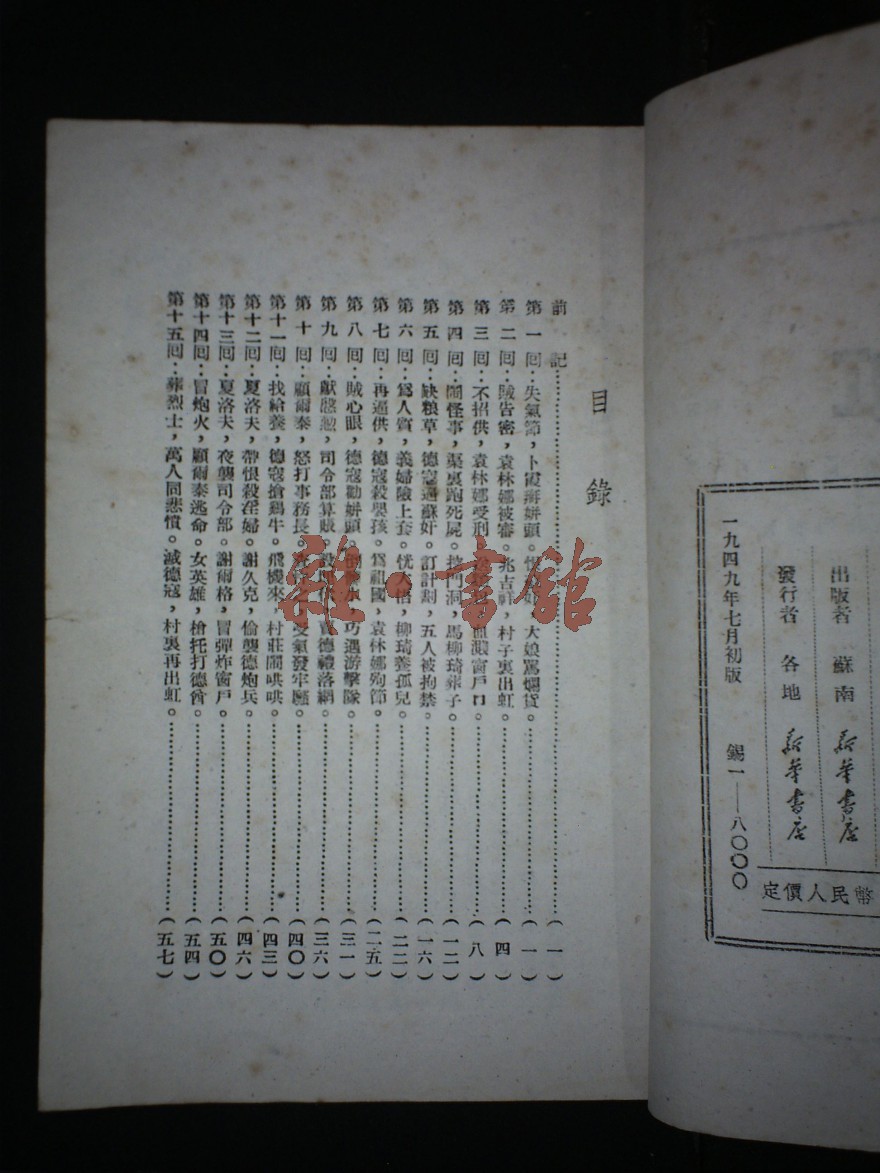 出版者 蘇南 新華書店
發行者 各地 新華書店
一九四九年七月初版 錫一——八〇〇〇
定價人民幣
目錄
前記……(一)
第一回：失氣節，卜霞姘頭。 大娘罵爛貨……(一)
第二回：賊告密，袁林娜被審。兆吉祥，村子裏出虹……(四)
第三回：不招供，袁林娜受刑。 血濺窗戶口……(八)
第四回：鬧怪事，渠裏跑死屍。挖門洞，馬柳琦葬子……(一二)
第五回：缺粮草，德寇 蘇奸。訂計劃，五人被拘禁……(一六)
第六回：爲人質，義婦險上套。恍大悟，柳琦養孤兒……(二二)
第七回：再逼供，德寇殺嬰孩。爲祖國，袁林娜殉節……(二五)
第八回：賊心眼，德寇勸姘頭。 巧遇游擊隊……(三一)
第九回：獻慇懃，司令部算賬。設 賈德禮落網……(三六)
第十回：顧爾泰，怒打事務長。 受氣發牢騷……(四〇)
第十一回：找給養，德寇搶鷄牛。飛機來，村莊鬧哄哄……(四三)
第十二回：夏洛夫，帶恨殺淫婦。謝久克，偷襲德炮兵……(四六)
第十三回：夏洛夫，夜襲司令部。謝爾格，冒彈炸窗戶……(五〇)
第十四回：冒炮火，顧爾泰逃命。女英雄，槍托打德酋……(五四)
第十五回：葬烈士，萬人同悲憤。滅德寇，村裏再出虹……(五七)
雜·書館